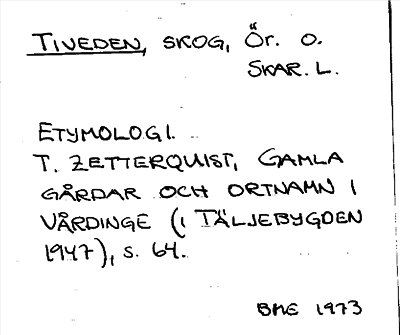 TIVEDEN, SKOG, ÖR. O.
SKAR. L.
ETYMOLOGI.
T. ZETTERQUIST, GAMLA
GÅRDAR OCH ORTNAMN I
VÅRDINGE (I TÄLJEBYGDEN
1947), S. 64.
BME 1973